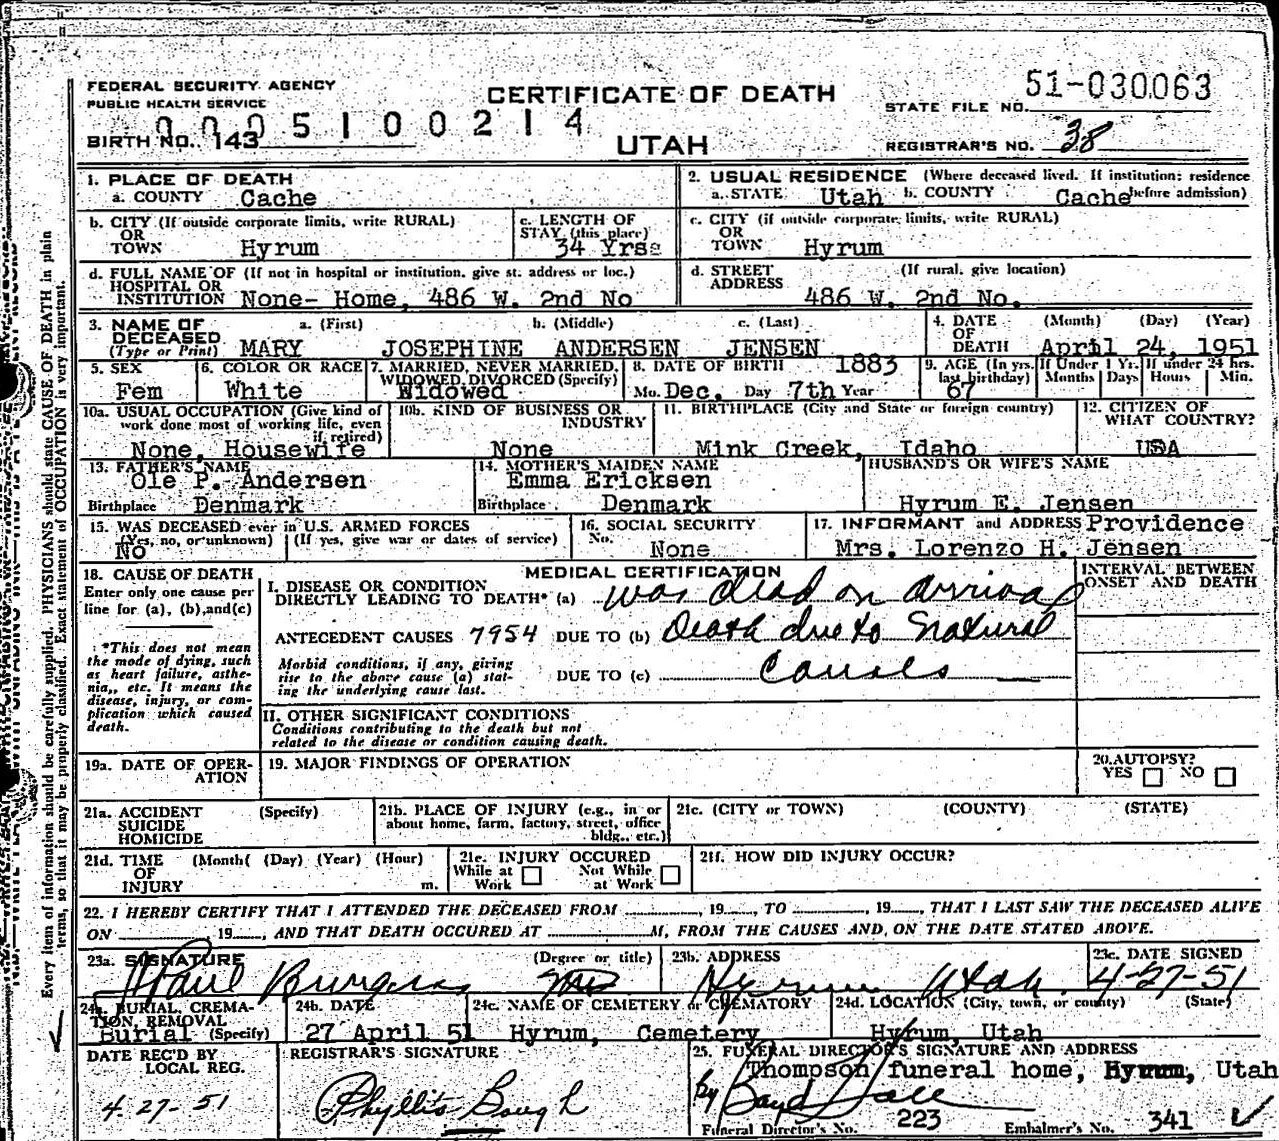 FEDERAL SECURITY AGENCY
PUBLIC HEALTH SERVICE
CERTIFICATE OF DEATH
UTAH
STATE FILE NO. 51-030063
0005100214
BIRTH NO. 143
REGISTRAR'S NO. 38
1. PLACE OF DEATH
a. COUNTY Cache
2. USUAL RESIDENCE (Where deceased lived. If institution: residence before admission)
a. STATE Utah b. COUNTY Cache
b. CITY (If outside corporate limits, write RURAL)
OR
TOWN Hyrum
c. LENGTH OF
STAY (this place)
34 Yrs.
c. CITY (if outside corporate limits, write RURAL)
OR
TOWN Hyrum
d. FULL NAME OF (If not in hospital or institution, give st. address or loc.)
HOSPITAL OR
INSTITUTION None- Home, 486 W. 2nd No
d. STREET (If rural, give location)
ADDRESS
486 W. 2nd No.
3. NAME OF DECEASED
(Type or Print)
a. (First) b. (Middle) c. (Last)
MARY JOSEPHINE ANDERSEN JENSEN
4. DATE OF DEATH (Month) (Day) (Year)
April 24, 1951
5. SEX
Fem
6. COLOR OR RACE
White
7. MARRIED, NEVER MARRIED,
WIDOWED, DIVORCED (Specify)
Widowed
8. DATE OF BIRTH 1883
Mo. Dec. Day 7th Year
9. AGE (In yrs. last birthday)
67
If Under 1 Yr. Months Days
If under 24 hrs. Hours Min.
10a. USUAL OCCUPATION (Give kind of
work done most of working life, even
if retired)
None, Housewife
10b. KIND OF BUSINESS OR
INDUSTRY
None
11. BIRTHPLACE (City and State or foreign country)
Mink Creek, Idaho
12. CITIZEN OF
WHAT COUNTRY?
USA
13. FATHER'S NAME
Ole P. Andersen
Birthplace Denmark
14. MOTHER'S MAIDEN NAME
Emma Ericksen
Birthplace Denmark
HUSBAND'S OR WIFE'S NAME
Hyrum E. Jensen
15. WAS DECEASED ever in U.S. ARMED FORCES
(Yes, no, or unknown) (If yes, give war or dates of service)
No
16. SOCIAL SECURITY
No. None
17. INFORMANT and ADDRESS Providence
Mrs. Lorenzo H. Jensen
18. CAUSE OF DEATH
Enter only one cause per
line for (a), (b), and (c)
*This does not mean
the mode of dying, such
as heart failure, asthe-
nia,, etc. It means the
disease, injury, or com-
plication which caused
death.
MEDICAL CERTIFICATION
INTERVAL BETWEEN
ONSET AND DEATH
I. DISEASE OR CONDITION
DIRECTLY LEADING TO DEATH* (a) was dead on arrival
ANTECEDENT CAUSES 7954 DUE TO (b) Death due to Natural
Morbid conditions, if any, giving
rise to the above cause (a) stat-
ing the underlying cause last.
DUE TO (c) Causes
II. OTHER SIGNIFICANT CONDITIONS
Conditions contributing to the death but not
related to the disease or condition causing death.
19a. DATE OF OPER-
ATION
19. MAJOR FINDINGS OF OPERATION
20. AUTOPSY?
YES NO
21a. ACCIDENT (Specify)
SUICIDE
HOMICIDE
21b. PLACE OF INJURY (e.g., in or
about home, farm, factory, street, office
bldg., etc.)
21c. (CITY or TOWN) (COUNTY) (STATE)
21d. TIME (Month( (Day) (Year) (Hour)
OF
INJURY m.
21e. INJURY OCCURED
While at Work Not While at Work
21f. HOW DID INJURY OCCUR?
22. I HEREBY CERTIFY THAT I ATTENDED THE DECEASED FROM ............, 19....., TO ............, 19....., THAT I LAST SAW THE DECEASED ALIVE
ON ............ 19....., AND THAT DEATH OCCURED AT ............M, FROM THE CAUSES AND, ON THE DATE STATED ABOVE.
23a. SIGNATURE (Degree or title)
Paul Burgess MD
23b. ADDRESS
Hyrum Utah
23c. DATE SIGNED
4-27-51
24a. BURIAL, CREMA-
TION, REMOVAL
Burial (Specify)
24b. DATE
27 April 51
24c. NAME OF CEMETERY or CREMATORY
Hyrum, Cemetery
24d. LOCATION (City, town, or county) (State)
Hyrum, Utah
DATE REC'D BY
LOCAL REG.
4-27-51
REGISTRAR'S SIGNATURE
Phyllis Bough
25. FUNERAL DIRECTOR'S SIGNATURE AND ADDRESS
Thompson funeral home, Hyrum, Utah
By Boyd Hall
Funeral Director's No. 223 Embalmer's No. 341
Every item of information should be carefully supplied. PHYSICIANS should state CAUSE OF DEATH in plain
terms, so that it may be properly classified. Exact statement of OCCUPATION is very important.